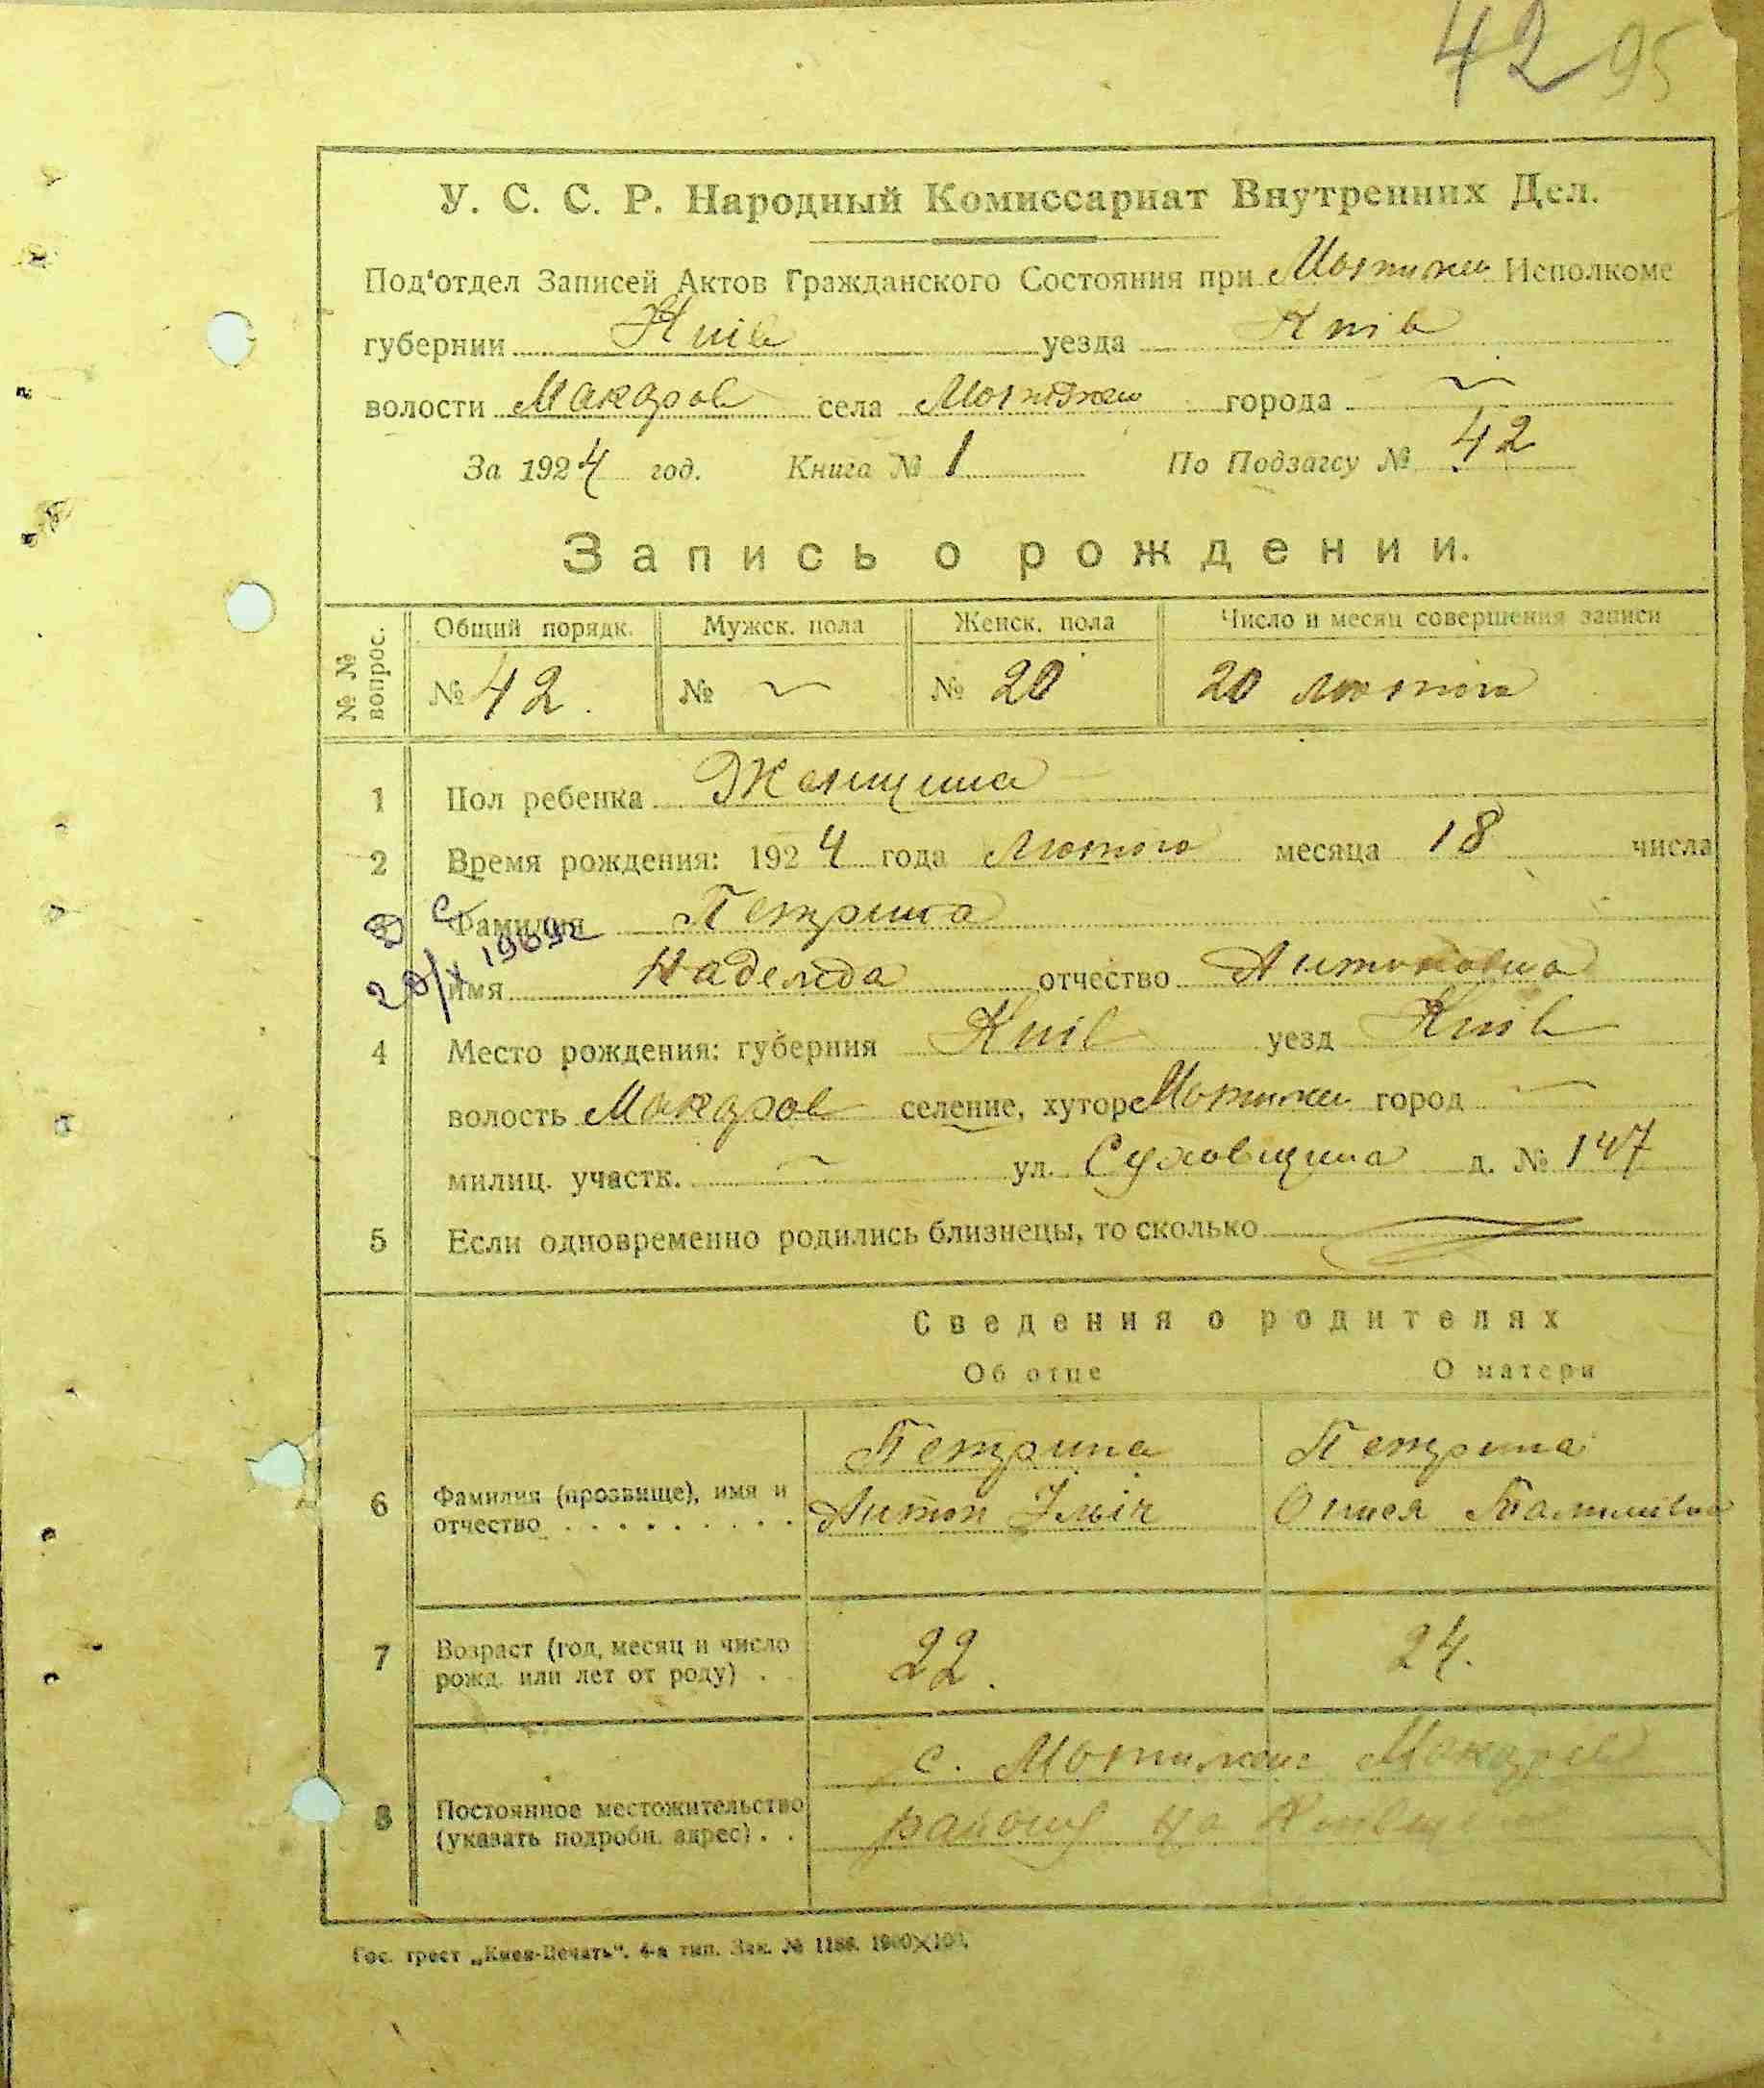 42 95
У. С. С. Р. Народный Комиссариат Внутренних Дел.
Под'отдел Записей Актов Гражданского Состояния при Мотижи Исполкоме
губернии Київ уезда Київ
волости Макаров села Мотижи города
За 1924 год. Книга № 1 По Подзагсу № 42
Запись о рождении.
№ № вопрос. Общий порядк. Мужск. пола Женск. пола Число и месяц совершения записи
№ 42. № № 20 20 лютого
1 Пол ребенка Женщина
2 Время рождения: 1924 года Лютого месяца 18 числа
3 Фамилия Петрина
имя Надежда отчество Антоновна
4 Место рождения: губерния Київ уезд Київ
волость Макаров селение, хуторе Мотижи город
милиц. участк. ул. Суховщина д. № 147
5 Если одновременно родились близнецы, то сколько
Сведения о родителях
Об отце О матери
Петрина Петрина
6 Фамилия (прозвище), имя и отчество Антон Ільіч
7 Возраст (год, месяц и число рожд. или лет от роду) 22. 24.
с. Мотижин Макарів
8 Постоянное местожительство (указать подробн. адрес) району на
Гос. трест „Киев-Печать". 4-я тип. Зак. № 1186. 1900×100.